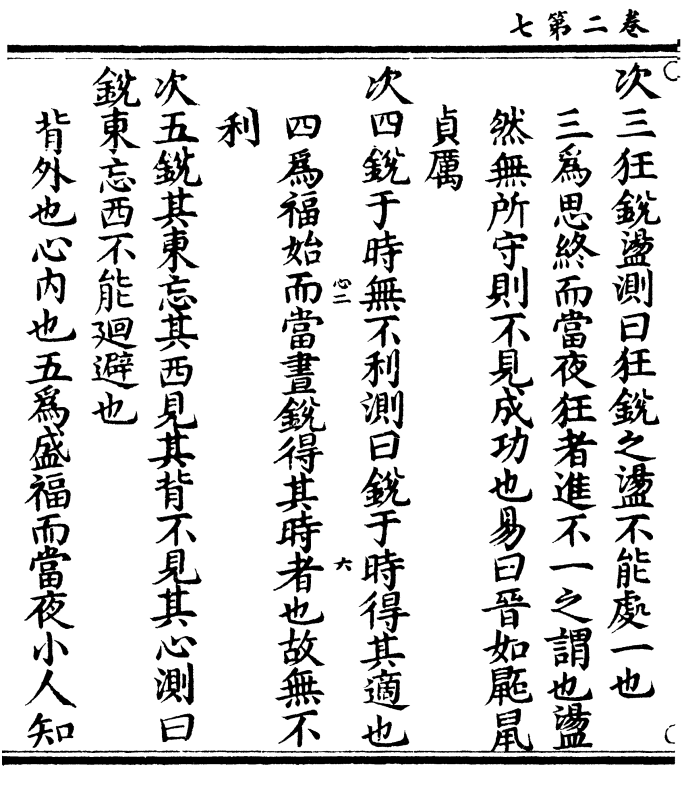 卷二第七
次三狂銳盪測曰狂銳之盪不能處一也
三爲思終而當夜狂者進不一之謂也盪
然無所守則不見成功也易曰晉如鼫鼠
貞厲
次四銳于時無不利測曰銳于時得其適也
心二
六
四爲福始而當晝銳得其時者也故無不
利
次五銳其東忘其西見其背不見其心測曰
銳東忘西不能廻避也
背外也心内也五爲盛福而當夜小人知